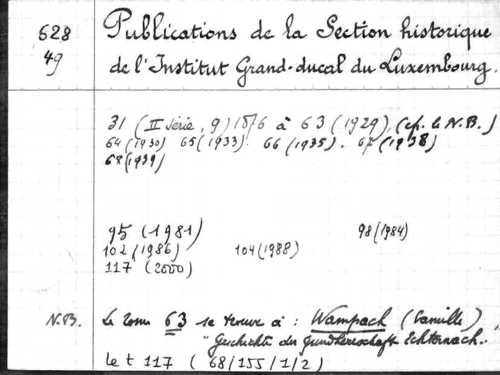 628
49
Publications de la Section historique
de l'Institut Grand-ducal du Luxembourg.
31 (II série, 9) 1876 à 63 (1929), (cf. le N.B.)
64 (1930) 65 (1933) 66 (1935). 67 (1938)
68 (1939)
95 (1981) 98 (1984)
102 (1986) 104 (1988)
117 (2000)
N.B. Le tome 63 se trouve à : Wampach (Camille),
"Geschichte der Grundherrschaft Echternach..
Le t 117 (68/155/1/2)